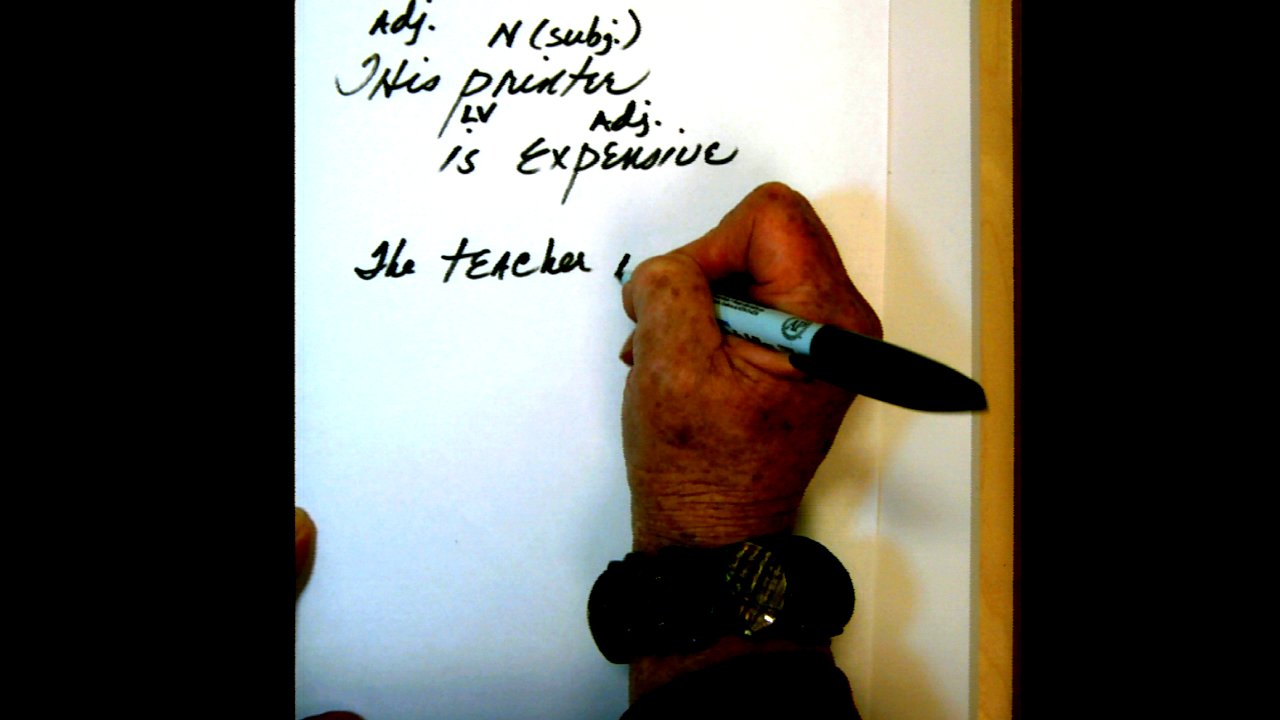 Adj. N (subj.)
THis printer
LV Adj.
is Expensive
The tEAcher